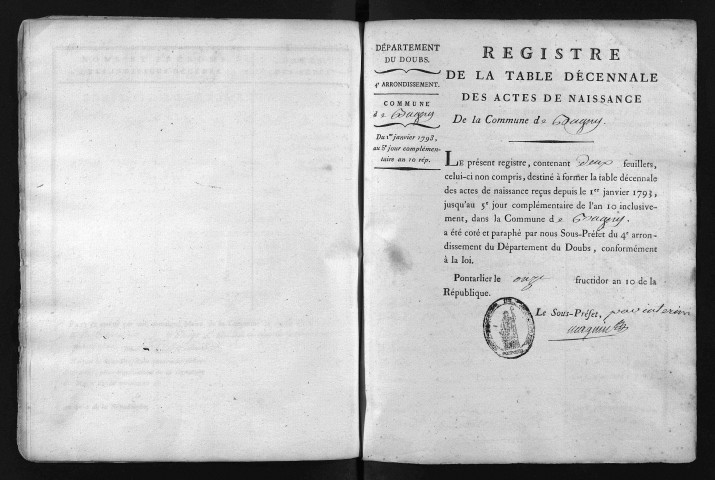 DÉPARTEMENT
DU DOUBS.
4e ARRONDISSEMENT.
COMMUNE
de Bugny
Du 1er janvier 1793,
au 5e jour complémen-
taire an 10 rép.
REGISTRE
DE LA TABLE DÉCENNALE
DES ACTES DE NAISSANCE
De la Commune de Bugny.
LE présent registre, contenant deux feuillets,
celui-ci non compris, destiné à former la table décennale
des actes de naissance reçus depuis le 1er janvier 1793,
jusqu'au 5e jour complémentaire de l'an 10 inclusive-
ment, dans la Commune de Bugny.
a été coté et paraphé par nous Sous-Préfet du 4e arron-
dissement du Département du Doubs, conformément
à la loi.
Pontarlier le onze fructidor an 10 de la
République.
Le Sous-Préfet, par interim